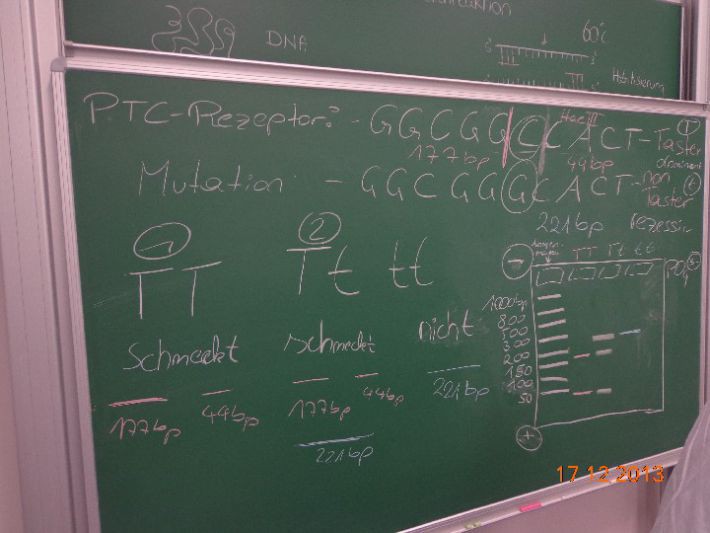 DNA
60°C
PTC-Rezeptor: - GGCGGCCACT-Taster
HaeIII
T
dominant
177bp
44bp
Mutation: - GGCGGGCACT-non
Taster
t
221bp rezessiv
1
2
TT
Tt
tt
schmeckt
schmeckt
nicht
177bp
44bp
177bp
44bp
221bp
221bp
TT Tt tt
-
1000bp
800
500
300
200
150
100
50
+
17 12 2013